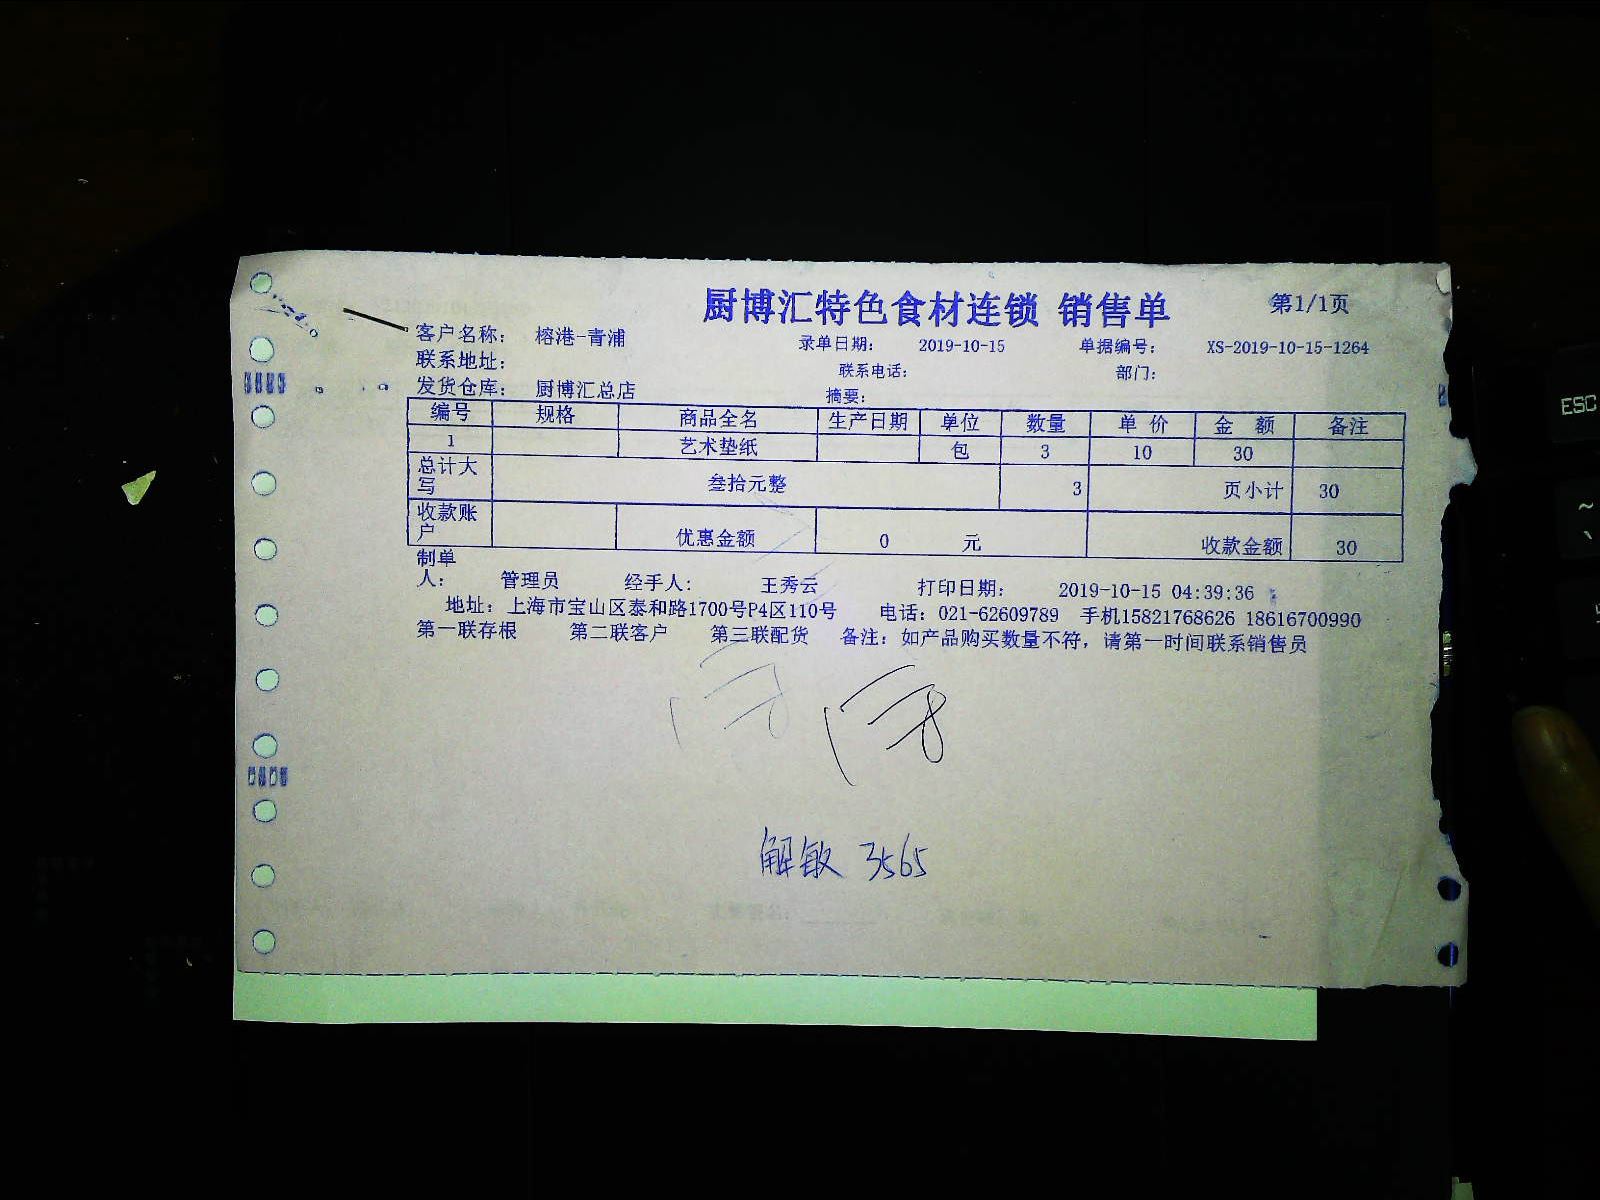 厨博汇特色食材连锁 销售单 第1/1页
客户名称： 榕港-青浦 录单日期： 2019-10-15 单据编号： XS-2019-10-15-1264
联系地址： 联系电话： 部门：
发货仓库： 厨博汇总店 摘要：
编号 规格 商品全名 生产日期 单位 数量 单 价 金 额 备注
1 艺术垫纸 包 3 10 30
总计大写 叁拾元整 3 页小计 30
收款账户 优惠金额 0 元 收款金额 30
制单人： 管理员 经手人： 王秀云 打印日期： 2019-10-15 04:39:36
地址：上海市宝山区泰和路1700号P4区110号 电话：021-62609789 手机15821768626 18616700990
第一联存根 第二联客户 第三联配货 备注：如产品购买数量不符，请第一时间联系销售员
解敏 3565
ESC